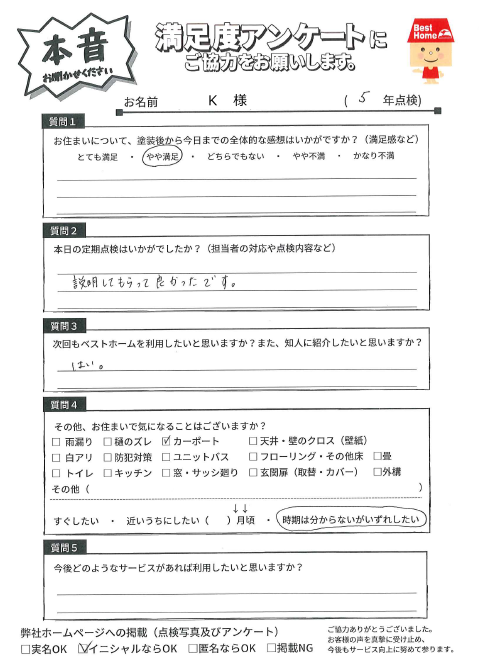 本音
お聞かせください
満足度アンケートに
ご協力をお願いします。
Best
Home
お名前 K 様 ( 5 年点検)
質問1
お住まいについて、塗装後から今日までの全体的な感想はいかがですか?(満足感など)
とても満足 ・ やや満足 ・ どちらでもない ・ やや不満 ・ かなり不満
質問2
本日の定期点検はいかがでしたか?(担当者の対応や点検内容など)
説明してもらって良かったです。
質問3
次回もベストホームを利用したいと思いますか?また、知人に紹介したいと思いますか?
はい。
質問4
その他、お住まいで気になることはございますか?
□ 雨漏り □ 樋のズレ ☑ カーポート □ 天井・壁のクロス(壁紙)
□ 白アリ □ 防犯対策 □ ユニットバス □ フローリング・その他床 □畳
□ トイレ □ キッチン □ 窓・サッシ廻り □ 玄関扉(取替・カバー) □外構
その他( )
↓↓
すぐしたい ・ 近いうちにしたい( )月頃 ・ 時期は分からないがいずれしたい
質問5
今後どのようなサービスがあれば利用したいと思いますか?
弊社ホームページへの掲載(点検写真及びアンケート)
□実名OK ☑イニシャルならOK □匿名ならOK □掲載NG
ご協力ありがとうございました。
お客様の声を真摯に受け止め、
今後もサービス向上に努めて参ります。